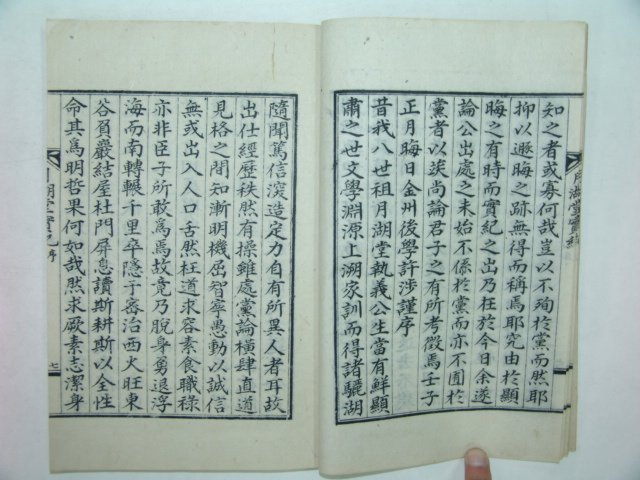 知之者或寡何哉豈以不殉於黨而然耶
抑以遐晦之跡無得而稱焉耶究由於顯
晦之有時而實紀之出乃在於今日余遂
論公出處之末始不係於黨而亦不囿於
黨者以俟尚論君子之有所考徵焉壬子
正月晦日金州後學許涉謹序
昔我八世祖月湖堂執義公生當有鮮顯
肅之世文學淵源上溯家訓而得諸驪湖
月湖堂實紀
隨聞篤信深造定力自有所異人者耳故
出仕經歷秩然有操雖處黨論橫肆直道
見格之間知漸明機屈智寧愚動以誠信
無或出入人口舌然枉道求容素食職祿
亦非臣子所敢爲焉故竟乃脫身勇退浮
海而南轉輾千里卒隱于密治西火旺東
谷貟巖結屋杜門屏息讀斯耕斯以全性
命其爲明哲果何如哉然求厥素志潔身
月湖堂實紀 序